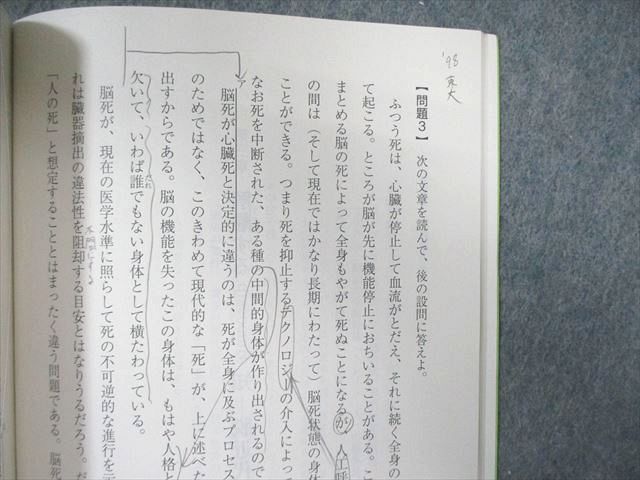 '98 東大
【問題３】 次の文章を読んで、後の設問に答えよ。
ふつう死は、心臓が停止して血流がとだえ、それに続く全身の
て起こる。ところが脳が先に機能停止におちいることがある。こ
まとめる脳の死によって全身もやがて死ぬことになるが、人工呼
の間は（そして現在ではかなり長期にわたって）脳死状態の身体
ことができる。つまり死を抑止するテクノロジーの介入によって
なお死を中断された、ある種の中間的身体が作り出されるので
ア
脳死が心臓死と決定的に違うのは、死が全身に及ぶプロセス
のためではなく、このきわめて現代的な「死」が、上に述べた
出すからである。脳の機能を失ったこの身体は、もはや人格と
欠いて、いわば誰でもない身体として横たわっている。
だれ
脳死が、現在の医学水準に照らして死の不可逆的な進行を示
れは臓器摘出の違法性を阻却する目安とはなりうるだろう。だ
「人の死」と想定することとはまったく違う問題である。脳死